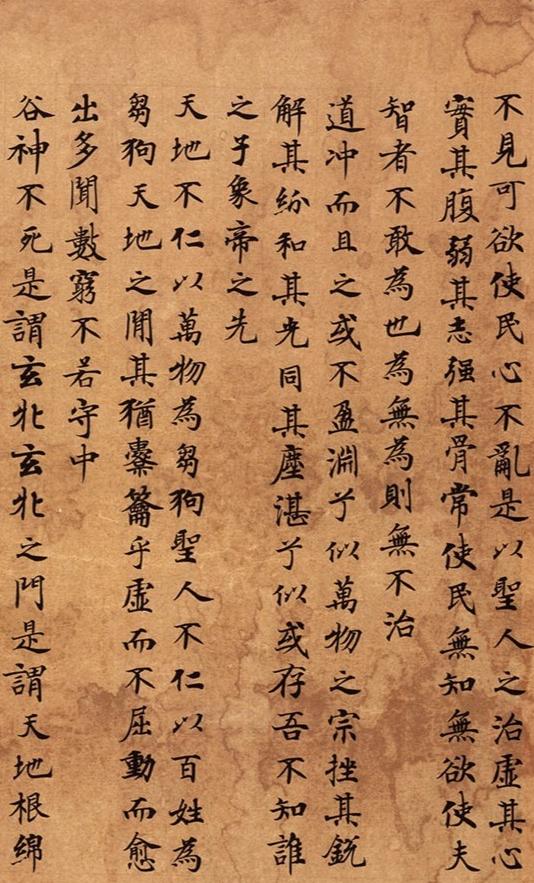 不見可欲使民心不亂是以聖人之治虛其心
實其腹弱其志强其骨常使民無知無欲使夫
智者不敢為也為無為則無不治
道冲而且之或不盈淵兮似萬物之宗挫其銳
解其紛和其光同其塵湛兮似或存吾不知誰
之子象帝之先
天地不仁以萬物為芻狗聖人不仁以百姓為
芻狗天地之間其猶橐籥乎虛而不屈動而愈
出多聞數窮不若守中
谷神不死是謂玄牝玄牝之門是謂天地根綿